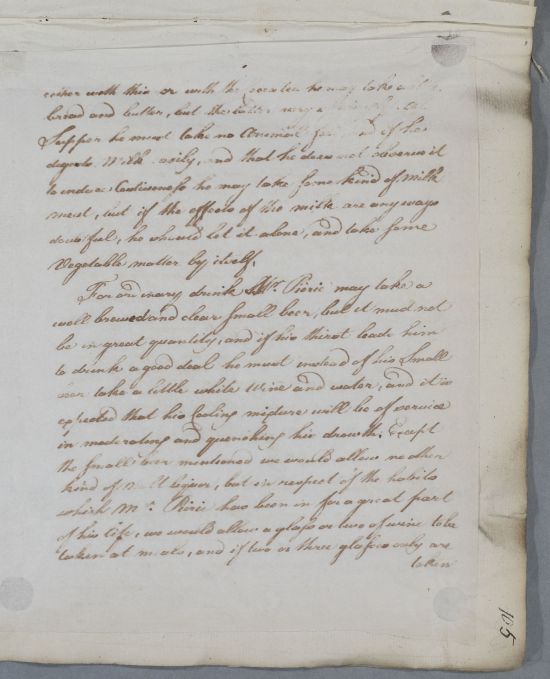 either with this or with the cocolea he may take a little
bread and butter, but the latter very
Supper he must take no Animal food, and if he
digests Milk easily, and that he does not observe it
to induce Costiveness he may take some kind of Milk
meat, but if the effects of the milk are any ways
doubtful, he should let it alone, and take some
Vegetable matter by itself.
For ordinary drink Mr. Pierie may take a
well brewed and clear Small beer, but it must not
be in great quantity, and if his thirst leads him
to drink a good deal he must instead of his Small
beer take a little white Wine and water, and it is
expected that his Cooling mixture will be of service
in moderating and quenching his drowth. Except
the Small beer mentioned we would allow no other
kind of Malt liquor, but in respect of the habits
which Mr. Pierie has been in for a great part
of his life, we would allow a glass or two of wine to be
taken at meals, and if two or three glasses only are
taken
105